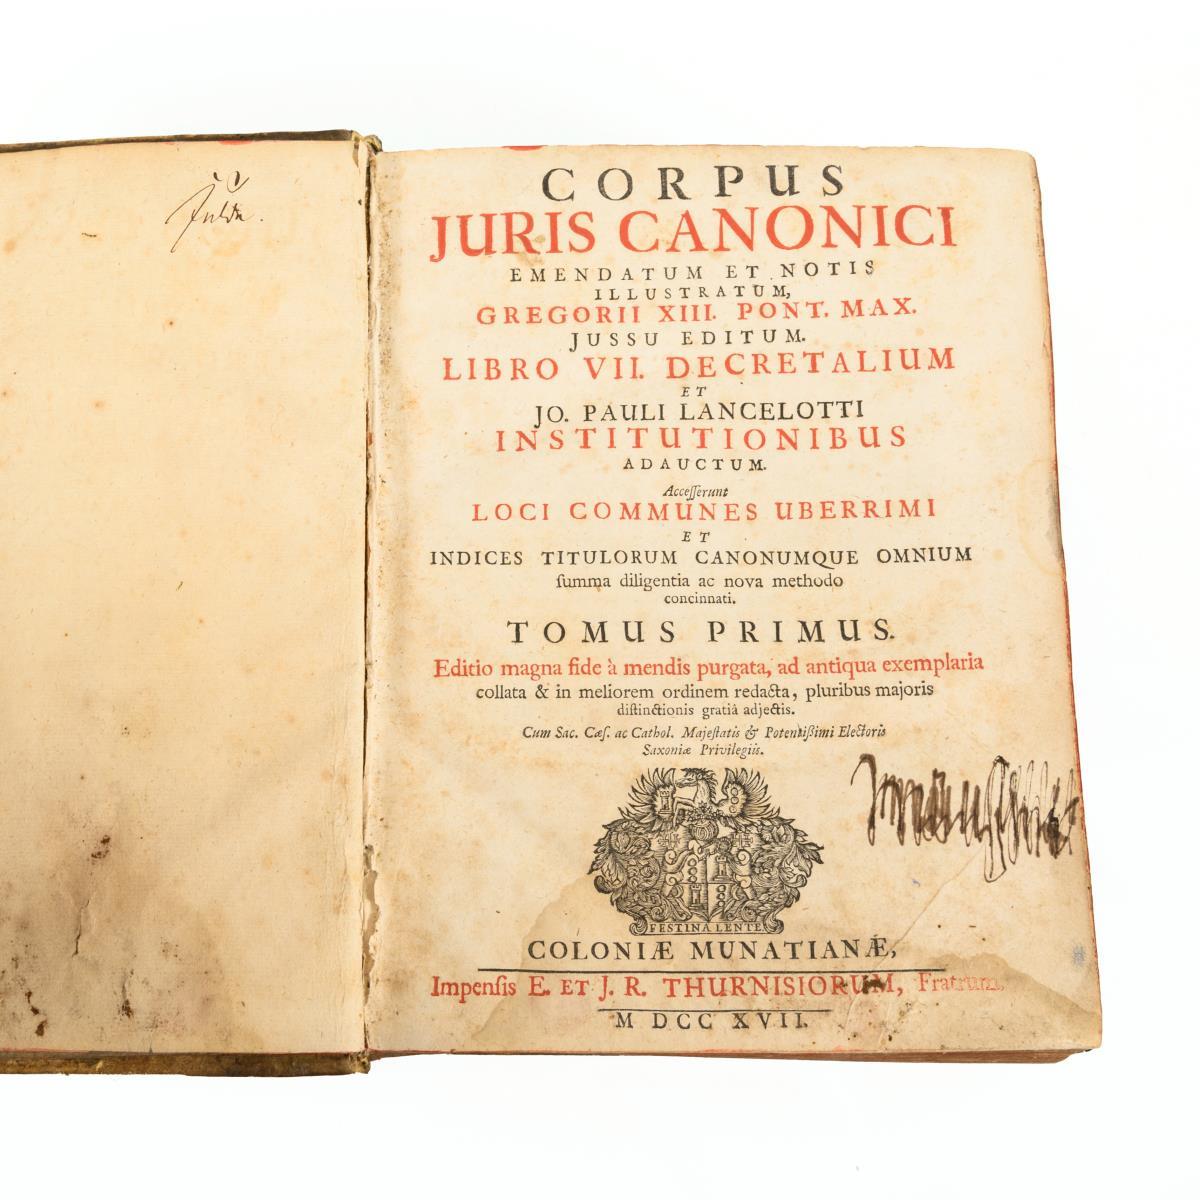 CORPUS
JURIS CANONICI
EMENDATUM ET NOTIS
ILLUSTRATUM,
GREGORII XIII. PONT. MAX.
JUSSU EDITUM.
LIBRO VII. DECRETALIUM
ET
JO. PAULI LANCELOTTI
INSTITUTIONIBUS
ADAUCTUM.
Accesserunt
LOCI COMMUNES UBERRIMI
ET
INDICES TITULORUM CANONUMQUE OMNIUM
summa diligentia ac nova methodo
concinnati.
TOMUS PRIMUS.
Editio magna fide à mendis purgata, ad antiqua exemplaria
collata & in meliorem ordinem redacta, pluribus majoris
distinctionis gratiâ adjectis.
Cum Sac. Cæs. ac Cathol. Majestatis & Potentißimi Electoris
Saxoniæ Privilegiis.
FESTINA LENTE
COLONIÆ MUNATIANÆ,
Impensis E. ET J. R. THURNISIORUM, Fratrum.
M DCC XVII.